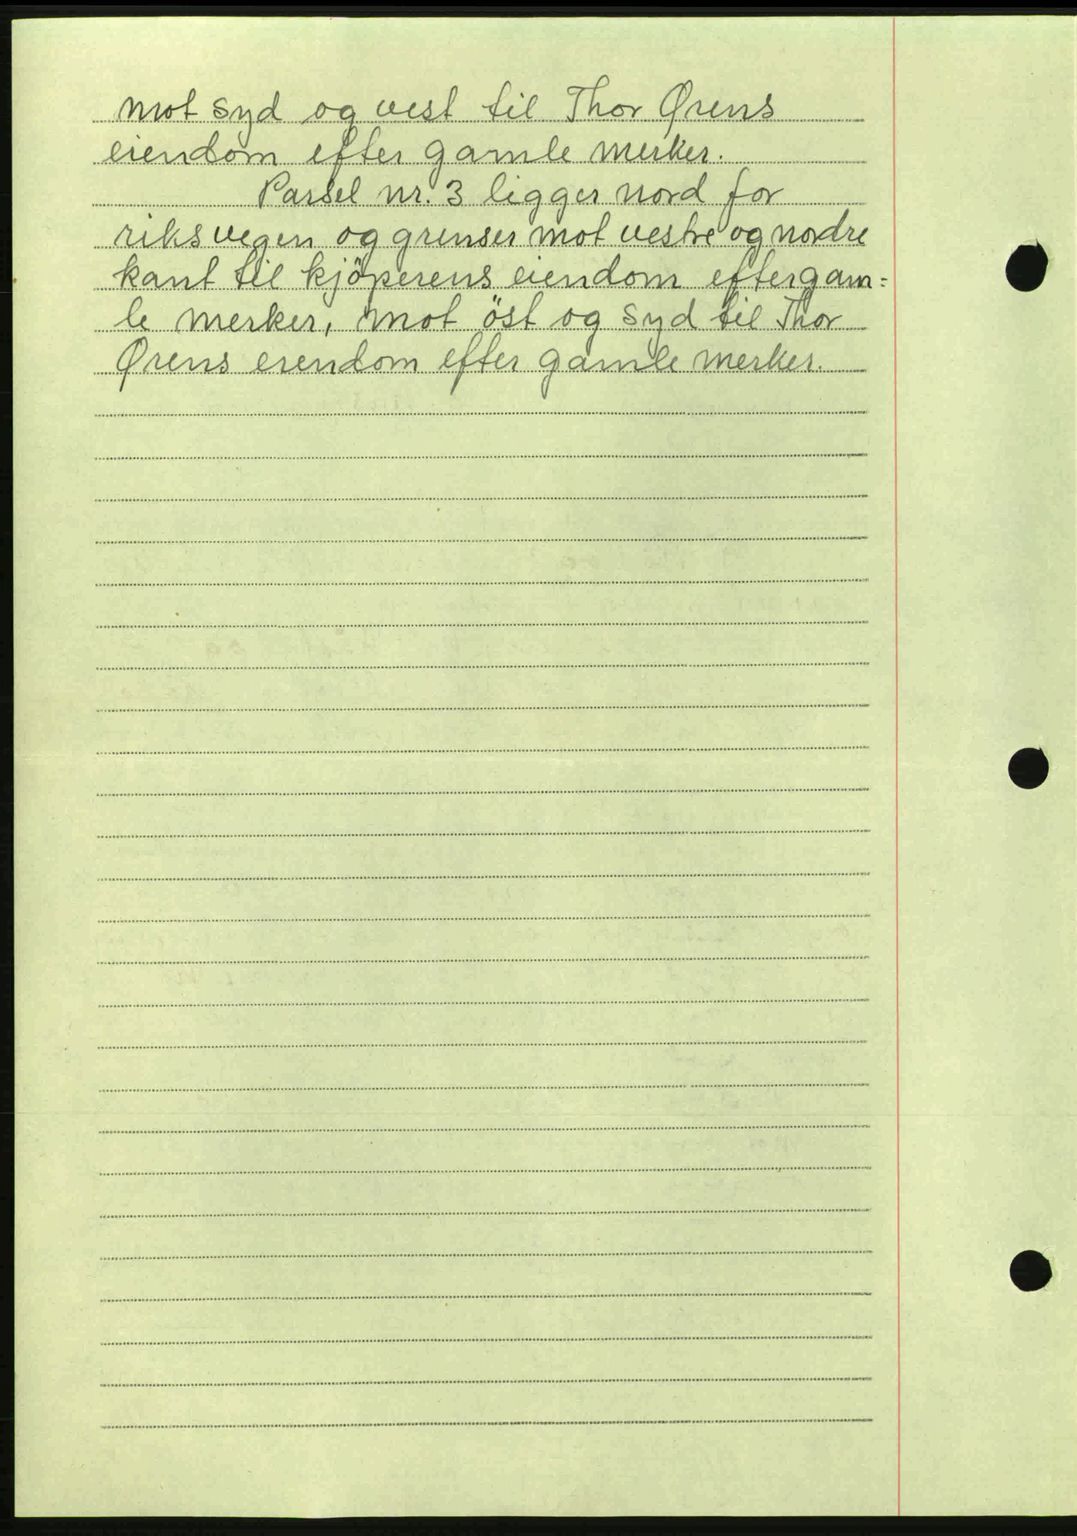 mot syd og vest til Thor Ørens
eiendom efter gamle merker.
Parsel nr. 3 ligger nord for
riksvegen og grenser mot vestre og nordre
kant til kjöperens eiendom efter gam=
le merker, mot öst og syd til Thor
Ørens eiendom efter gamle merker.